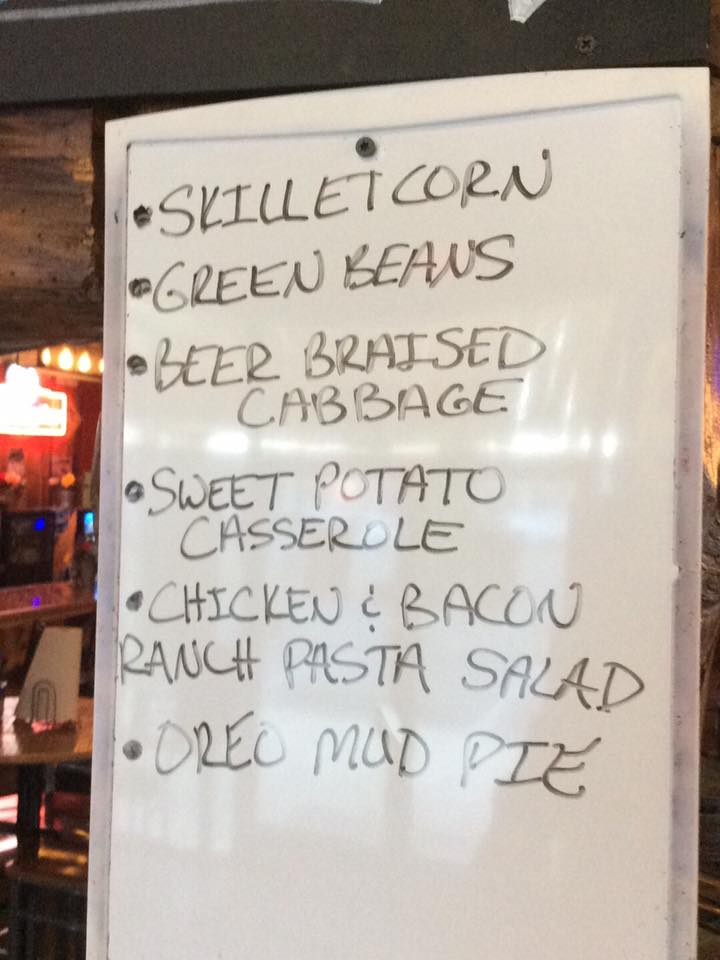 • SKILLET CORN
• GREEN BEANS
• BEER BRAISED
CABBAGE
• SWEET POTATO
CASSEROLE
• CHICKEN & BACON
RANCH PASTA SALAD
• OREO MUD PIE